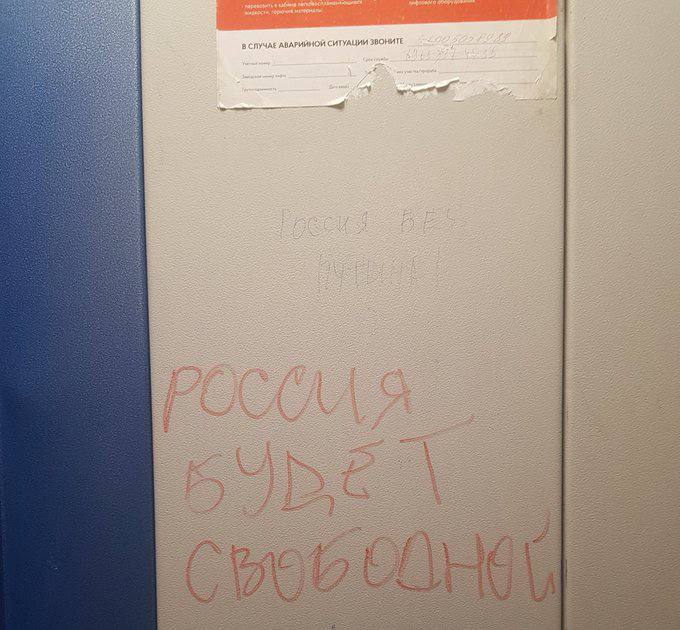 перевозить в кабине легковоспламеняющиеся
жидкости, горючие материалы.
лифтового оборудования.
В СЛУЧАЕ АВАРИЙНОЙ СИТУАЦИИ ЗВОНИТЕ
Учетный номер
Срок службы
Заводской номер лифта
Грузоподъемность
РОССИЯ БЕЗ
ПУТИНА!
РОССИЯ
БУДЕТ
СВОБОДНОЙ